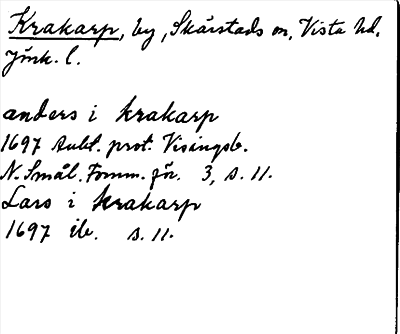 Krakarp, by, Skärstads sn, Vista hd,
Jönk. l.
anders i krakarp
1697 Aukt. prot. Visingsb.
N. Smål. Fornm. för. 3, s. 11.
Lars i krakarp
1697 ib. s. 11.